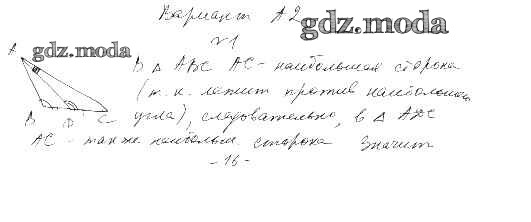 Вариант А2
gdz.moda
№1
A
gdz.moda
В △ ABC AC - наибольшая сторона
(т.к. лежит против наибольшего
B D C
угла), следовательно, в △ ADC
AC - также наибольш. сторона Значит
- 16 -